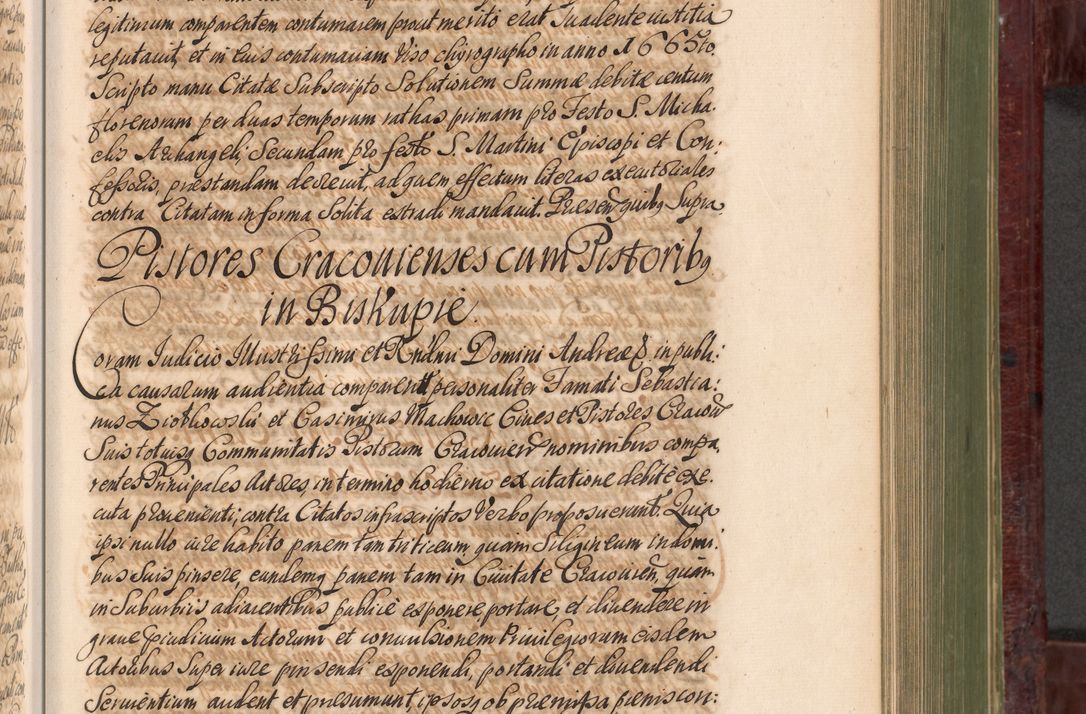 legitimum comparentem contumacem prout merito erat Suadente iustitia
reputauit, et in Eius contumaciam Viso chyrographo in anno 1665to
Scripto manu Citatæ Subscripto Solutionem Summæ debitæ centum
florenorum per duas temporum rathas primam pro Festo S. Micha:
elis Archangeli, Secundam pro festo S. Martini Episcopi et Con:
fessoris, præstandam decreuit, ad quem effectum literas executoriales
contra Citatam in forma Solita extradi mandauit. Præsen̄ quibq Supra
Pistores Cracouienses cum Pistoribq
in Biskupie.
Coram Iudicio Illustrissimi et Rndmi Domini Andreæ in publi:
ca causarum audientia comparentt personaliter Famati Sebastia:
nus Ziobkowski et Casimirus Machowic Ciues et Pistores Cracouien̄
Suis totiusq Communitatis Pistorum Cracouien̄ nominibus compa:
rentes Principales Actores, in termino hodierno ex citatione debite exe:
cuta prouenienti, contra Citatos infrascriptos Verbo proposuerunt. Quia
ipsi nullo iure habito panem tam triticeum quam Siligineum in domi:
bus Suis pinsere, eundemq panem tam in Ciuitate Cracouien̄, quam
in Suburbiis adiacentibus publicè exponere, portare, et diuendere in
graue præiudicium Actorum et conuulsionem Priuilegiorum eisdem
Actoribus Super iure pinsendi exponendi, portandi et diuendendi
Seruientium audent et præsumunt, ipsosq ob præmissa pænis con: